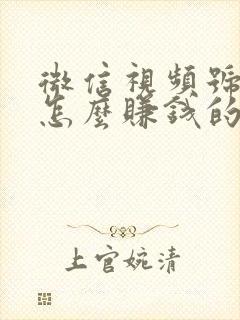 微信視頻號
怎麼賺錢的
上官婉清